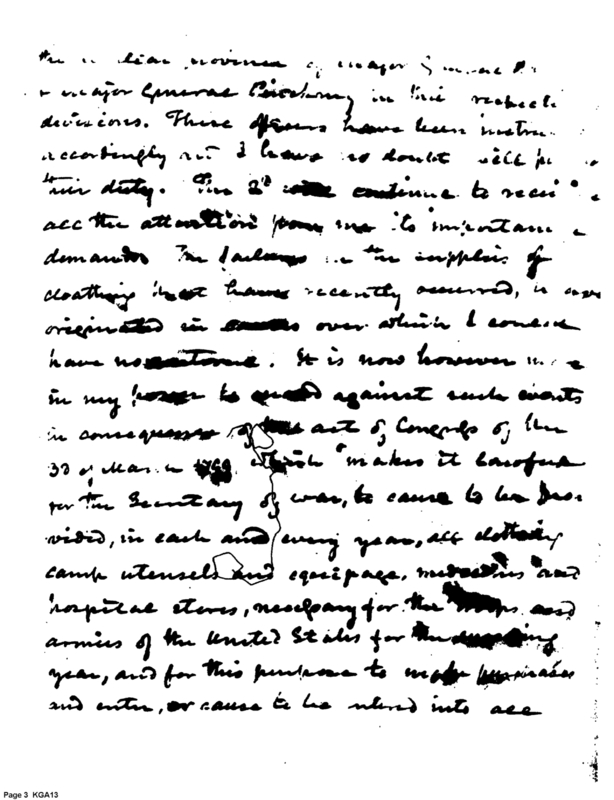 province of major General
major General Pinckney in their respecti
divisions. These officers have been instru
accordingly and I have no doubt will
their duty. The 2d continue to recei
all the attention from me its importan
demands The failures in the supplies of
cloathing that have recently occurred,
originated in over which I could
have no controul. It is now however
in my power to guard against such events
in consequence of act of Congress of the
3d of March 1799 which makes it lawful
for the Secretary of war, to cause to be pro-
vided, in each and every year, all clothing
camp utensels and equipage, medicines and
hospital stores, necessary for the troops and
armies of the United States for the
year, and for this purpose to make purchases
and enter, or cause to be entered into all
Page 3 KGA13